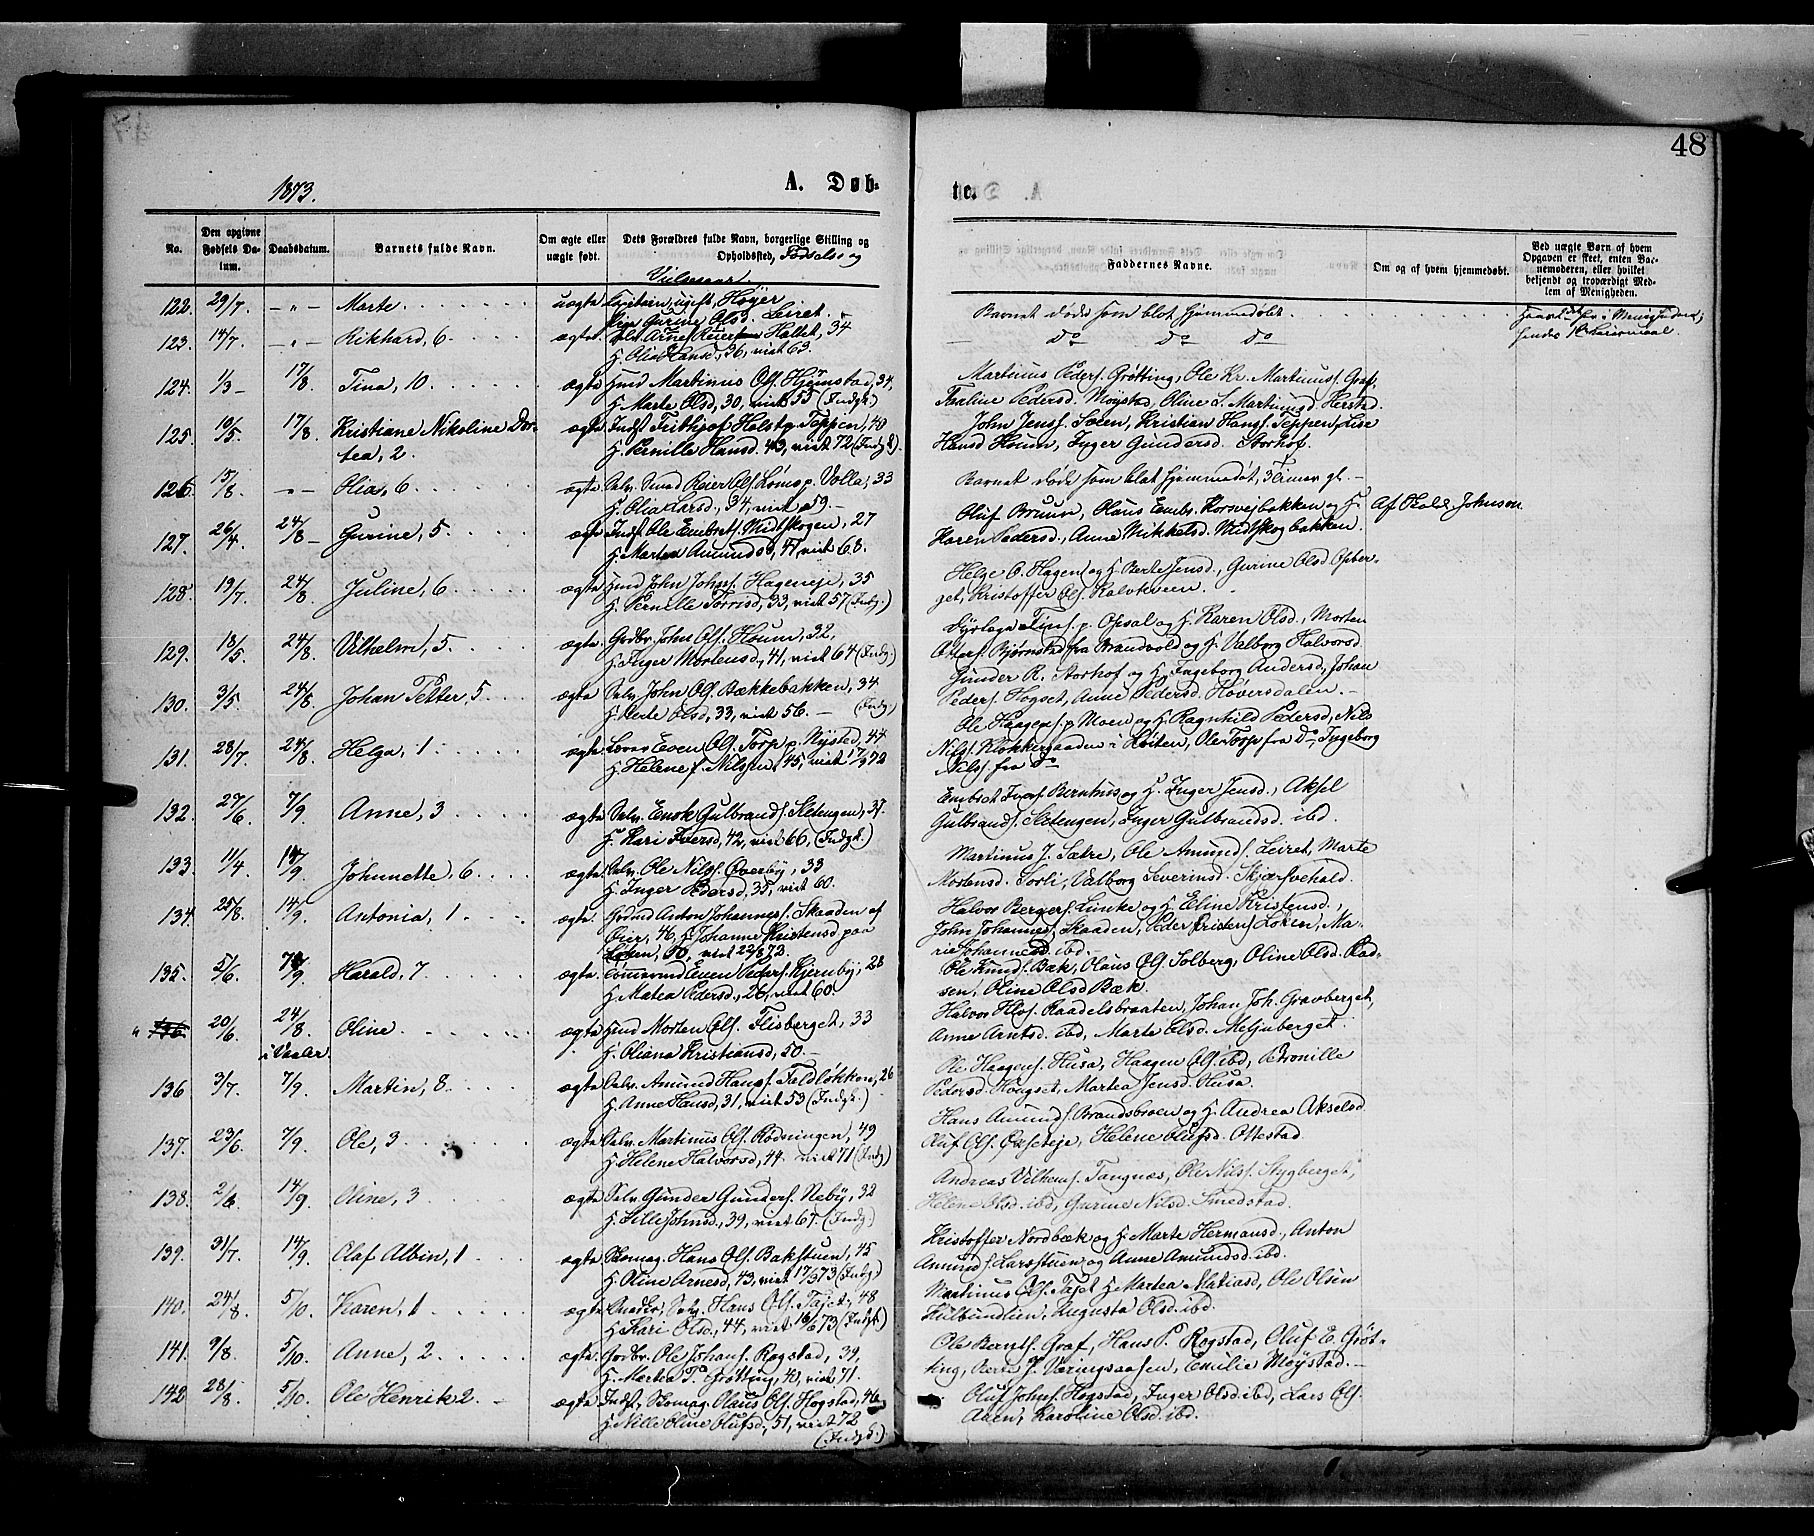 48
1873.
A. Døb-
te.
No.
Den opgivne Fødsels Datum.
Daabsdatum.
Barnets fulde Navn.
Om ægte eller uægte født.
Dets Forældres fulde Navn, borgerlige Stilling og Opholdsted, Fødselsog
Vielsesaar.
Faddernes Navne.
Om og af hvem hjemmedøbt.
Ved uægte Børn af hvem Opgaven er skeet, enten Barnemoderen, eller hvilket bekjendt og troværdigt Medlem af Menigheden.
122. 29/7 -"- Marte uægte ugift, Høyer
Pige Gurine Olsd. Leiret.
Barnet døde som blot hjemmedøbt.
123. 14/7 -"- Rikhard, 6 ægte Arne Hallet, 34
H. Olia Hansd., 36, viet 63.
— do do do
124. 1/3 17/8. Tina, 10 ægte Hmd Martinus Ols. Hjemstad, 34,
H. Marte Olsd, 30, viet 55 (Indgk.)
Martinus Peders. Grøtting, Ole Kr. Martinuss. Graf,
Paaline Pedersd. Moystad, Oline L. Martinusd. Herstad.
125. 10/5 17/8. Kristiane Nikoline Dortea, 2. ægte Indf. Frithjof Holst p. Teppen, 40
H. Pernille Hansd. 43, viet 72 (Indgk.)
John Jenss. Soen, Kristian Hanss. Teppen, Lise
Hansd Houm, Inger Gundersd. Storhof.
126. 15/8. -"- Olia, 6 ægte Selv. Smed Reier Ols. Løms p. Volla, 33
H. Olia Larsd., 34, viet 59.
Barnet døde som blot hjemmedøbt, 3 Timer gl.
127. 26/4 24/8 Gurine, 5 ægte Indf. Ole Embrets. Midtskogen, 27
H. Martea Amundsd, 41 viet 68.
Oluf Bruun, Olaus Embr. Korsvejbakken og H.
Karen Pedersd., Anne Mikkelsd. Midtskogbakken.
Af Johnson
128. 19/7. 24/8. Juline, 6 ægte Hmd John Johns. Hageneje, 35
H. Pernille Torrisd, 33, viet 57 (Indg.)
Helge O. Hagen og H. Berte Jensd., Gurine Olsd Opberget, Kristoffer Ols. Kalvkveen.
129. 18/5. 24/8. Vilhelm, 5 ægte Grdbr. John Ols. Houm, 32,
H. Inger Mortensd, 41, viet 64 (Indg.)
Dyrlæge p. Opsal og H. Karen Olsd., Morten
Otters. Bjørnstad fra Brandvold og H. Valborg Halvorsd.
130. 3/5. 24/8. Johan Petter, 5 ægte Selv. John Ols. Bækkebakken, 34
H. Berte Olsd, 33, viet 56. (Indg.)
Gunder R. Storhof og H. Ingeborg Andersd., Johan
Peders. Hogset, Anne Pedersd. Høversdalen.
131. 28/7. 24/8. Helga, 1 ægte Even Ols. Torp p. Nysted, 44
H. Helene f. Nilssen, 45, viet 72
Ole Haagens. p Moen og H. Ragnhild Pedersd, Nils
Nilss. Klokkergaarden i Løiten, Ole Torp fra Do, Ingeborg
Nilss. fra Do
132. 27/6. 7/9. Anne, 3 ægte Selv. Enok Gulbrands. Sletengen, 37.
H. Kari Iversd, 42, viet 66, (Indgk.)
Embret Bernhus og H. Inger Jensd., Aksel
Gulbrands. Sletengen, Inger Gulbrandsd. ibd.
133. 11/4 14/9. Johnnette, 6 ægte Selv. Ole Nilss. Overby, 33
H. Inger Pedersd, 35, viet 60.
Martinus J. Sætre, Ole Amunds. Leiret, Marte
Mortensd. Sorli, Valborg Severinsd. Skjærvehald.
134. 25/8. 14/9. Antonia, 1 ægte. Grdmd Anton Johanness. Skaaden af
Øier, 46, H. Johanne Kristensd paa
Løken, 30, viet 22/6 72.
Halvor Bergers. Lunke og H. Eline Kristensd.,
John Johanness. Skaaden, Peder Kristens. Løken, Marie Johannesd. ibd.
135. 5/6. 7/9. Harald, 7 ægte Even Peders. Kjernby, 28
H. Matea Pedersd., 26, viet 60.
Ole Knuds. Bæk, Olaus Ols. Solberg, Oline Olsd. Radsen, Oline Olsd Bæk.
" 136 20/6 24/8 i Vaaler Oline ægte Hmd Morten Ols. Flisberget, 33
H. Oliana Kristiansd, 50.
Halvor Hlos. Raadelsbraaten, Johan Joh. Gravberget,
Anne Arntsd. ibd, Marte Olsd. Meljuberget.
136 3/7. 7/9. Martin, 8 ægte Selv. Amund Hanss. Taldløkken, 26
H. Anne Hansd, 31, viet 53 (Indgk.)
Ole Haagens. Husa, Haagen Ols. ibd, Petronille
Pedersd. Hougset, Martea Jensd. Husa.
137. 23/6. 7/9. Ole, 3 ægte Selv. Martinus Ols. Rødningen, 49
H. Helene Halvorsd, 44. viet 71 (Indg.)
Hans Amunds. Brandsbroen og H. Andrea Akselsd
Oluf Ols. Oxseteje, Helene Olufsd. Ottestad.
138. 2/6. 14/9. Oline, 3 ægte Selv. Gunder Gunders. Neby, 32
H. Lille Johnsd., 39, viet 67. (Indg.)
Andreas Vilhems. Tangnæs, Ole Nilss. Stygberget,
Helene Olsd. ibd, Gurine Nilsd. Smedstad.
139. 31/7. 14/9. Olaf Albin, 1 ægte Skomag. Hans Ols. Bakstuen, 45
H. Oline Arnesd, 43, viet 17/3 73 (Indg.)
Kristoffer Nordbæk og H. Marte Hermansd., Anton
Amunds. Larsstuen og Anne Amundsd. ibd.
140. 24/8. 5/10. Karen, 1 ægte Snedker, Selv. Hans Ols. Tajet, 48
H. Kari Olsd., 44, viet 16/2 73 (Indgk.)
Martinus Ols. Tajet H. Martea Matiasd, Ole Olsen
Hulbundlien, Augusta Olsd. ibd.
141. 9/8. 5/10. Anne, 2 ægte Jordbr. Ole Johans. Rogstad, 39,
H. Martea T. Grøtting, 40, viet 71.
Ole Bernts. Graf, Hans P. Rogstad, Oluf E. Grøtting, Berte J. Væringsaasen, Emilie Moystad.
142 28/8. 5/10. Ole Henrik 2. ægte Indf., Skomag. Olaus Ols. Hogstad, 46
H. Nille Oline Olufsd., 51, viet 72
(Indgk.)
Oluf Johns. Hogstad, Inger Olsd. ibd, Lars Ols.
Aaen, Karoline Olsd. ibd.